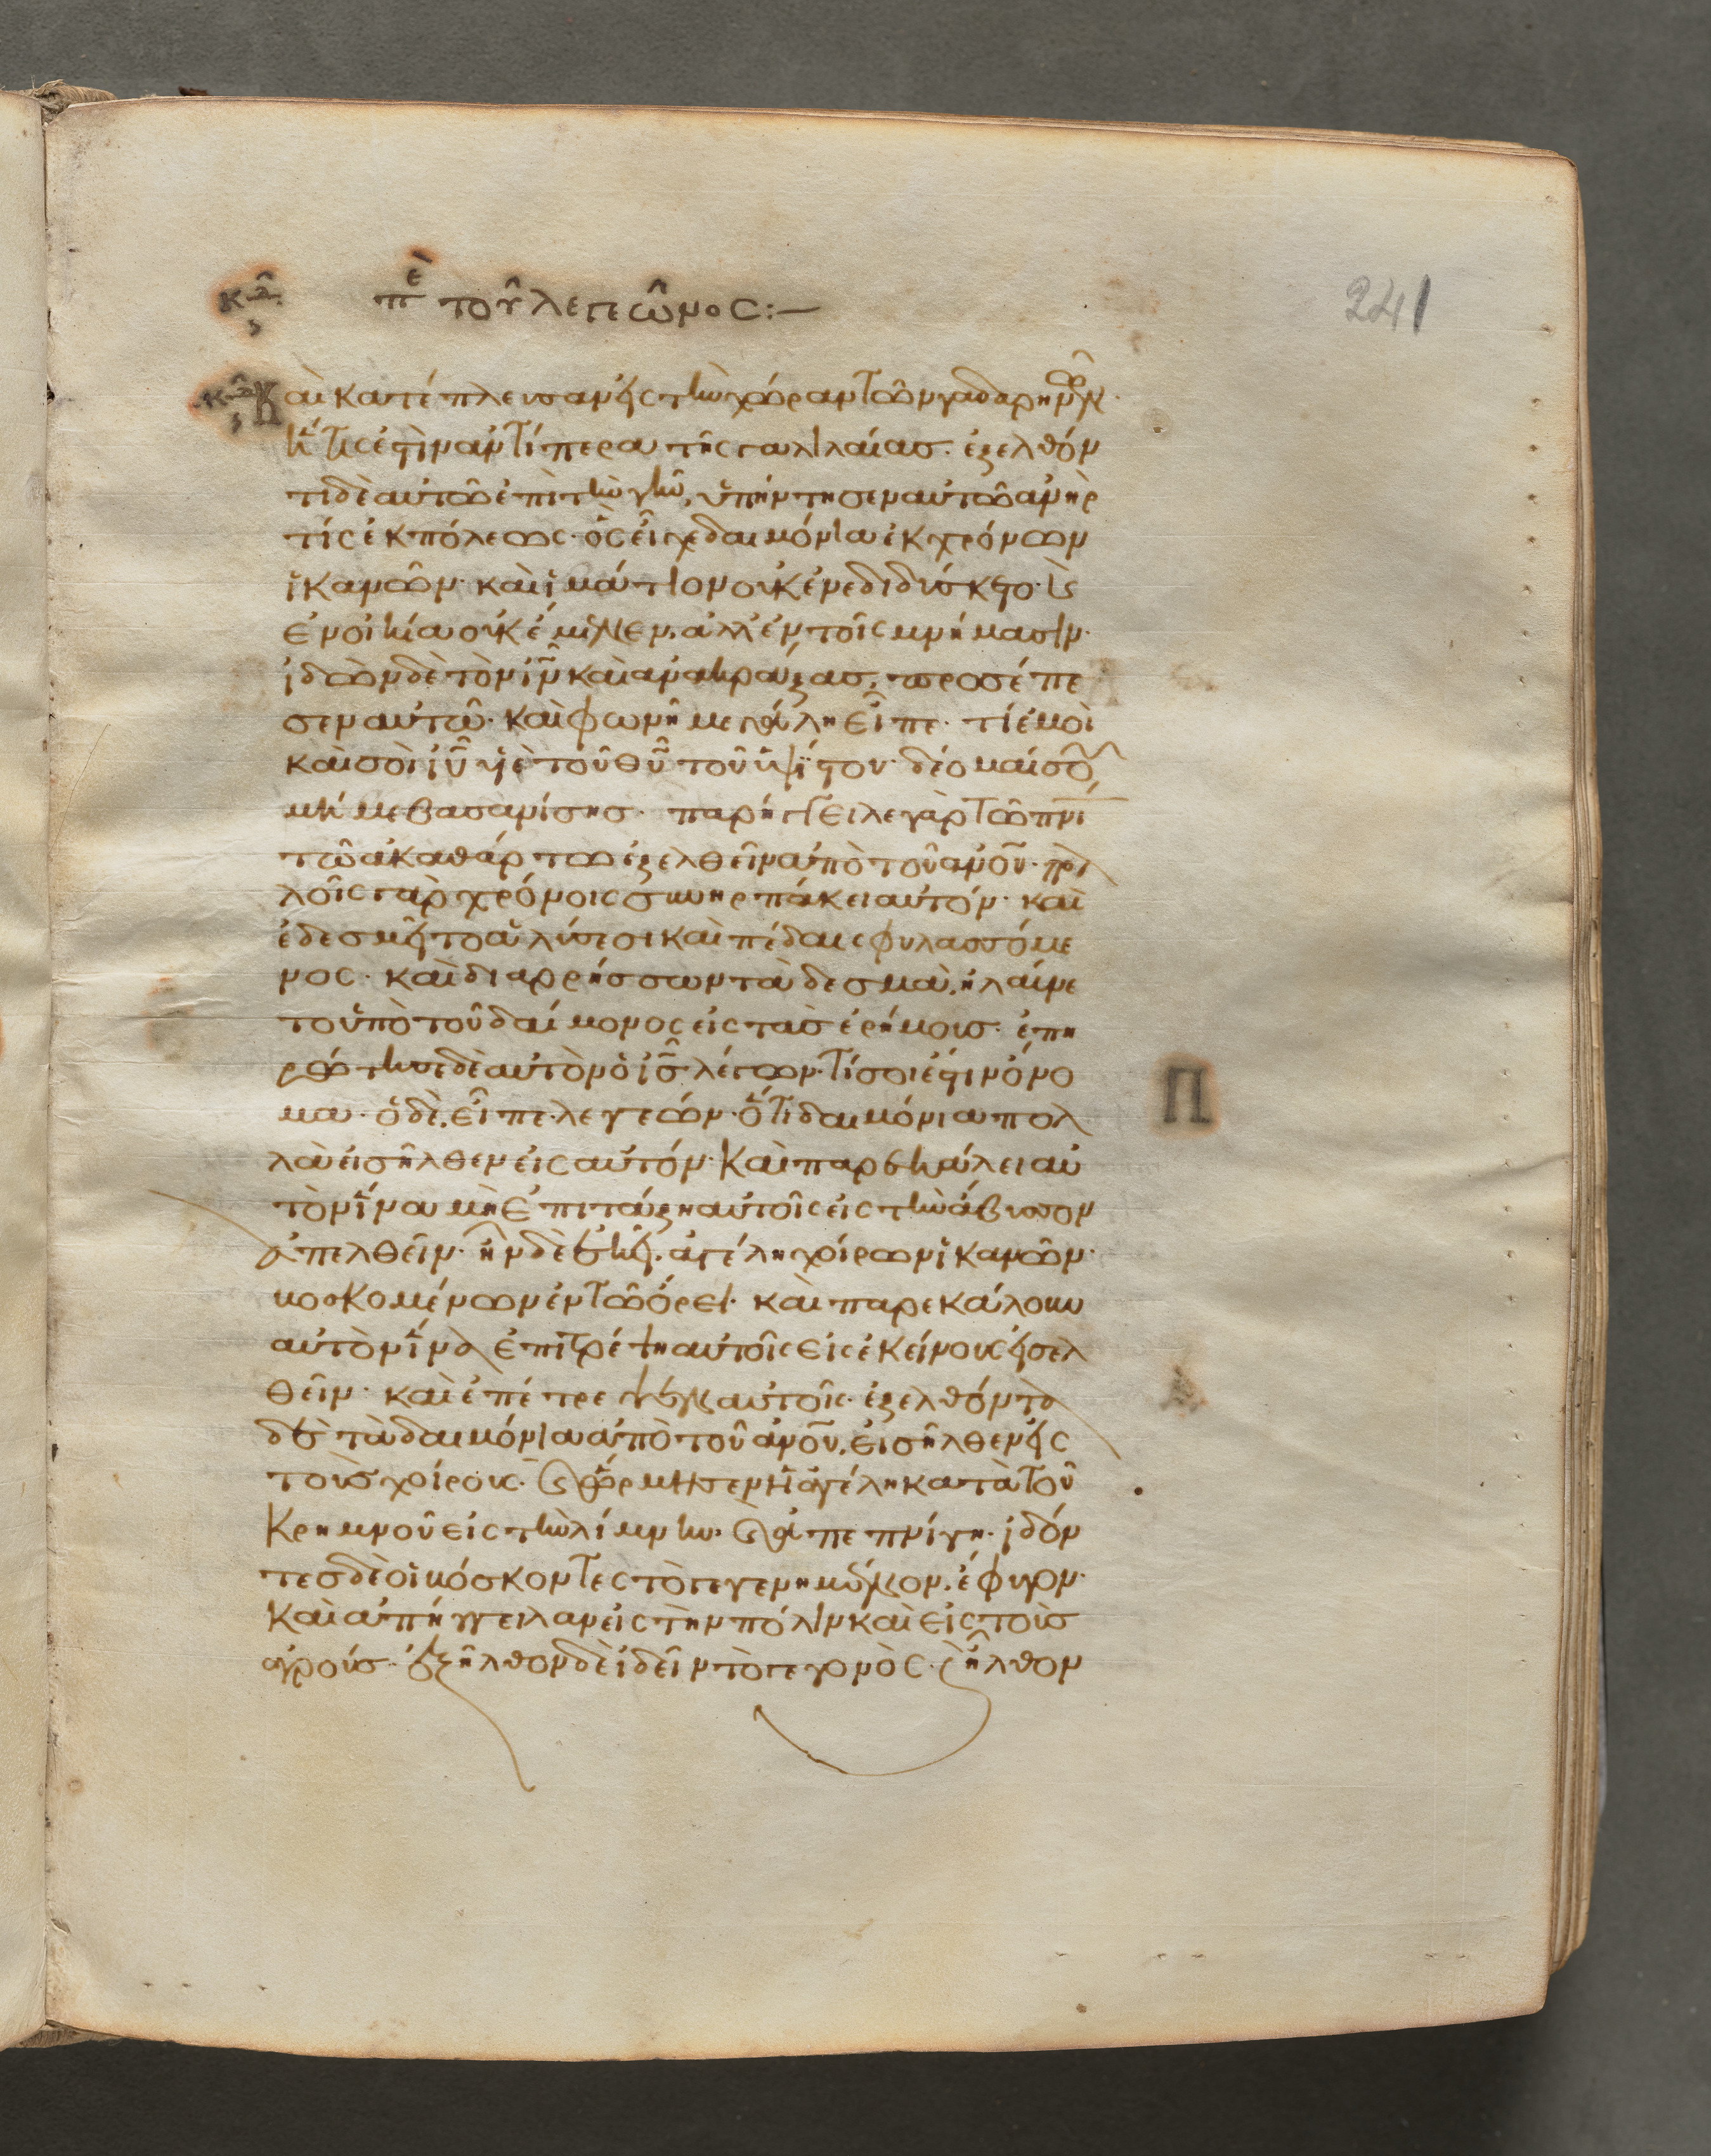 241
πε τοῦ λεγεῶνος:—
Καὶ κατέπλευσαν εἰς τὴν χώραν τῶν γαδαρηνῶν·
ἥτις ἐστὶν ἀντίπερα τῆς γαλιλαίας. ἐξελθόν
τι δὲ αὐτῶ ἐπὶ τὴν γῆν, ὑπήντησεν αὐτῶ ἀνὴρ
τίς ἐκ πόλεως· ὃς εἶχε δαιμόνια ἐκ χρόνων
ἱκανῶν· καὶ ἱμάτιον οὐκ ἐνεδιδύσκετο· καὶ
ἐν οἰκία οὐκ ἔμενεν, ἀλλ' ἐν τοῖς μνήμασιν·
ἰδὼν δὲ τὸν ιν καὶ ἀνακράξας, προσέπε
σεν αὐτῶ· καὶ φωνῆ μεγάλη εἶπε· τί ἐμοὶ
καὶ σοὶ ιυ υἱὲ τοῦ θυ τοῦ ὑψίστου· δέομαί σου
μή με βασανίσης· παρήγγειλε γὰρ τῶ πνι
τῶ ἀκαθάρτω ἐξελθεῖν ἀπὸ τοῦ ανου· πολ
λοῖς γὰρ χρόνοις συνηρπάκει αὐτόν· καὶ
ἐδεσμεῖτο ἁλύσεσι καὶ πέδαις φυλασσόμε
νος· καὶ διαρρήσσων τὰ δεσμὰ, ἠλαύνε
το ὑπὸ τοῦ δαίμονος εἰς τὰς ἐρήμους· ἐπη
ρώτησε δὲ αὐτὸν ὁ ις λέγων· τί σοι ἐστὶν ὄνο
μα· ὁ δὲ, εἶπε· λεγεών· ὅτι δαιμόνια πολ
Π
λὰ εἰσῆλθεν εἰς αὐτόν· Καὶ παρεκάλει αὐ
τὸν ἵνα μὴ ἐπιτάξη αὐτοῖς εἰς τὴν ἄβυσσον
ἀπελθεῖν· ἦν δὲ ἐκεῖ, ἀγέλη χοίρων ἱκανῶν·
βοσκομένων ἐν τῶ ὄρει· καὶ παρεκάλουν
αὐτὸν ἵνα ἐπιτρέψη αὐτοῖς εἰς ἐκείνους εἰσελ
θεῖν· καὶ ἐπέτρεψεν αὐτοῖς· ἐξελθόντα
δὲ τὰ δαιμόνια ἀπὸ τοῦ ανου, εἰσῆλθεν εἰς
τοὺς χοίρους· καὶ ὥρμησεν ἡ ἀγέλη κατὰ τοῦ
κρημνοῦ εἰς τὴν λίμνην· καὶ ἀπεπνίγη· ἰδόν
τες δὲ οἱ βόσκοντες τὸ γεγενημένον, ἔφυγον·
καὶ ἀπήγγειλαν εἰς τὴν πόλιν καὶ εἰς τοὺς
ἀγρούς· ἐξῆλθον δὲ ἰδεῖν τὸ γεγονὸς· καὶ ἦλθον